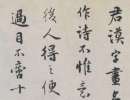 君漢字畫
作詩不惟
後人得之便
過目不啻十